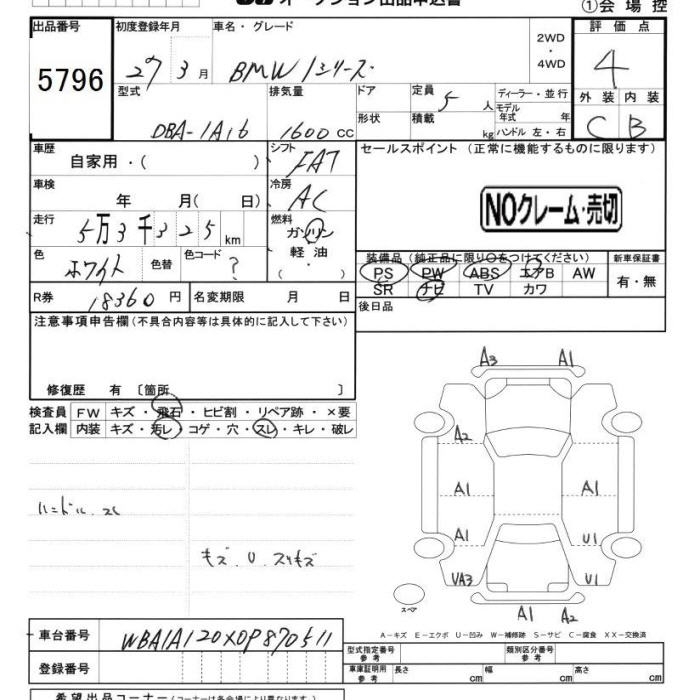 オークション出品申込書
①会場控
出品番号
5796
初度登録年月
27 3月
車名・グレード
BMW 1シリーズ
2WD
・
4WD
評価点
4
外装 内装
C B
型式
DBA-1A16
排気量
1600 CC
ドア
形状
定員
5人
積載
kg
ディーラー・並行
モデル年式 年
ハンドル 左・右
車歴
自家用・( )
シフト
FAT
セールスポイント (正常に機能するものに限ります)
車検
年 月( 日)
冷房
AC
NOクレーム・売切
走行
5万3千325km
燃料
ガソリン
軽油
・( )
色
ホワイト
色替
色コード
?
装備品 (純正品に限り○をつけてください)
PS PW ABS エアB AW
SR ナビ TV カワ
新車保証書
有・無
R券
18360円
名変期限 月 日
後日品
注意事項申告欄 (不具合内容等は具体的に記入して下さい)
修復歴 有 〔箇所 〕
検査員
記入欄
FW キズ・飛石・ヒビ割・リペア跡・×要
内装 キズ・汚レ・コゲ・穴・スレ・キレ・破レ
ハンドル.スレ
キズ.U.スリキズ
A3 A1
A2
A1 A1
A1 U1
UA3 U1
A1 A2
スペア
A−キズ E−エクボ U−凹み W−補修跡 S−サビ C−腐食 XX−交換済
車台番号
WBA1A120X0P870511
登録番号
型式指定番号
参考
類別区分番号
参考
車庫証明用
参考
長さ cm
幅 cm
高さ cm
希望出品コーナー (コーナーは各会場により異なります)